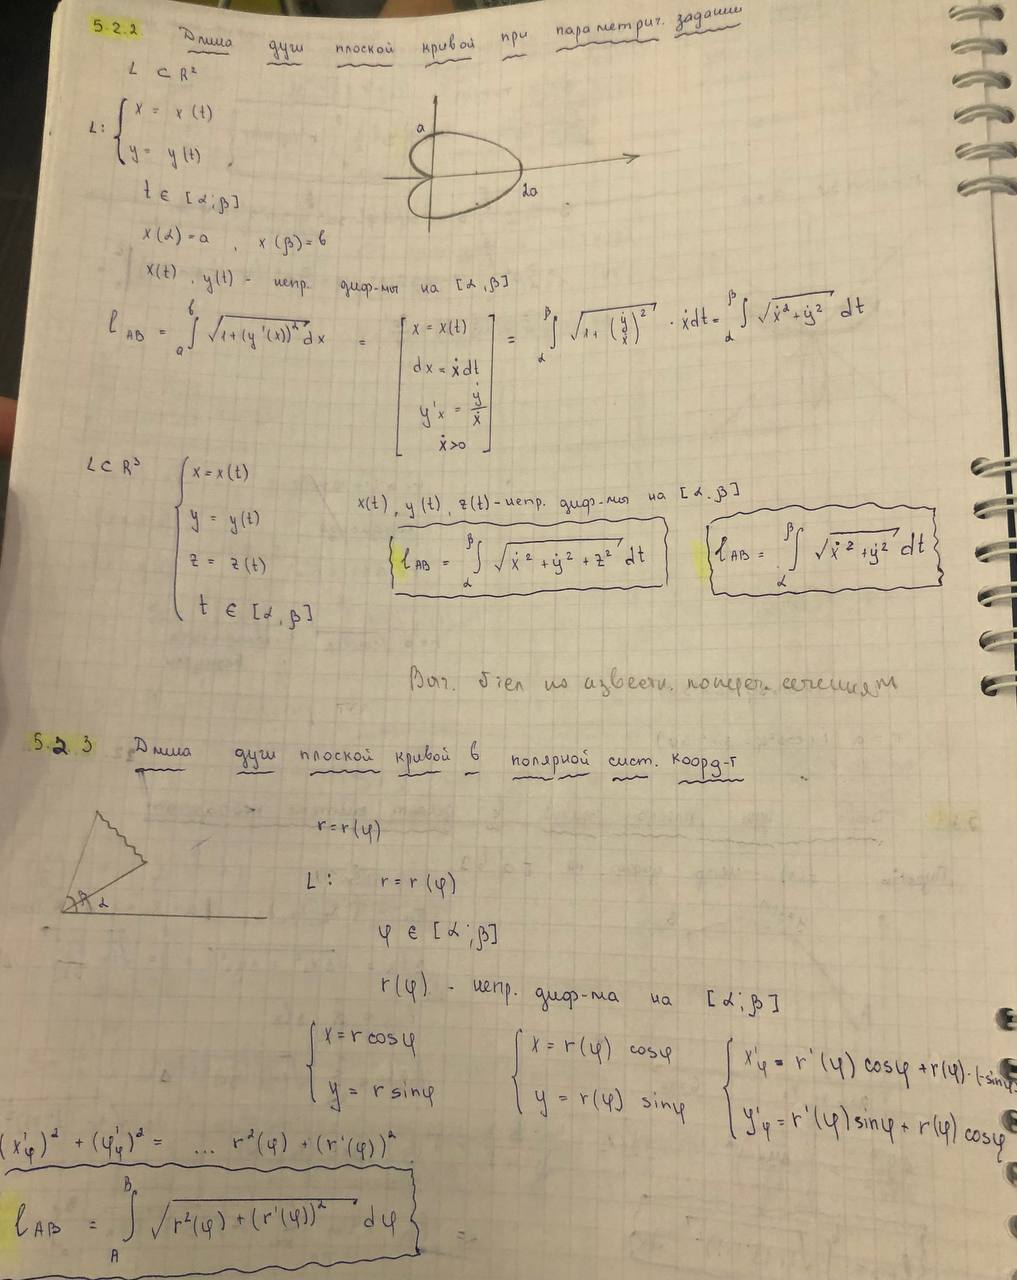 5.2.2 Длина дуги плоской кривой при параметрич. задании
L ⊂ R²
L: { x = x(t)
y = y(t)
t ∈ [α;β]
a
2a
x(α)=a , x(β)=b
x(t), y(t) - непр. диф-мы на [α,β]
l_AB = ∫_a^b √(1+(y'(x))²) dx = [ x = x(t) = ∫_α^β √(1+(ẏ/ẋ)²) · ẋdt = ∫_α^β √(ẋ²+ẏ²) dt
dx = ẋdt
y'x = ẏ/ẋ
ẋ>0 ]
L⊂R³ { x=x(t)
y = y(t)
z = z(t)
t ∈ [α,β]
x(t), y(t), z(t) - непр. диф-мы на [α.β]
l_AB = ∫_α^β √(ẋ²+ẏ²+z²) dt
l_AB = ∫_α^β √(ẋ²+ẏ²) dt
Выч. тел по извест. попереч. сечениям
5.2.3 Длина дуги плоской кривой в полярной сист. коорд-т
β α
r=r(φ)
L: r=r(φ)
φ ∈ [α;β]
r(φ) - непр. диф-ма на [α;β]
{ x=r cosφ { x = r(φ) cosφ { x'φ = r'(φ) cosφ + r(φ)·(-sinφ
y = r sinφ y = r(φ) sinφ y'φ = r'(φ) sinφ + r(φ) cosφ
(x'φ)² + (φ'φ)² = ... r²(φ) + (r'(φ))²
l_AB = ∫_A^B √(r²(φ)+(r'(φ))²) dφ =